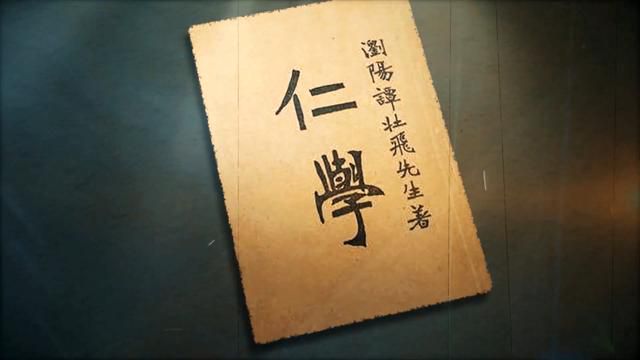 瀏陽譚壯飛先生著
仁學